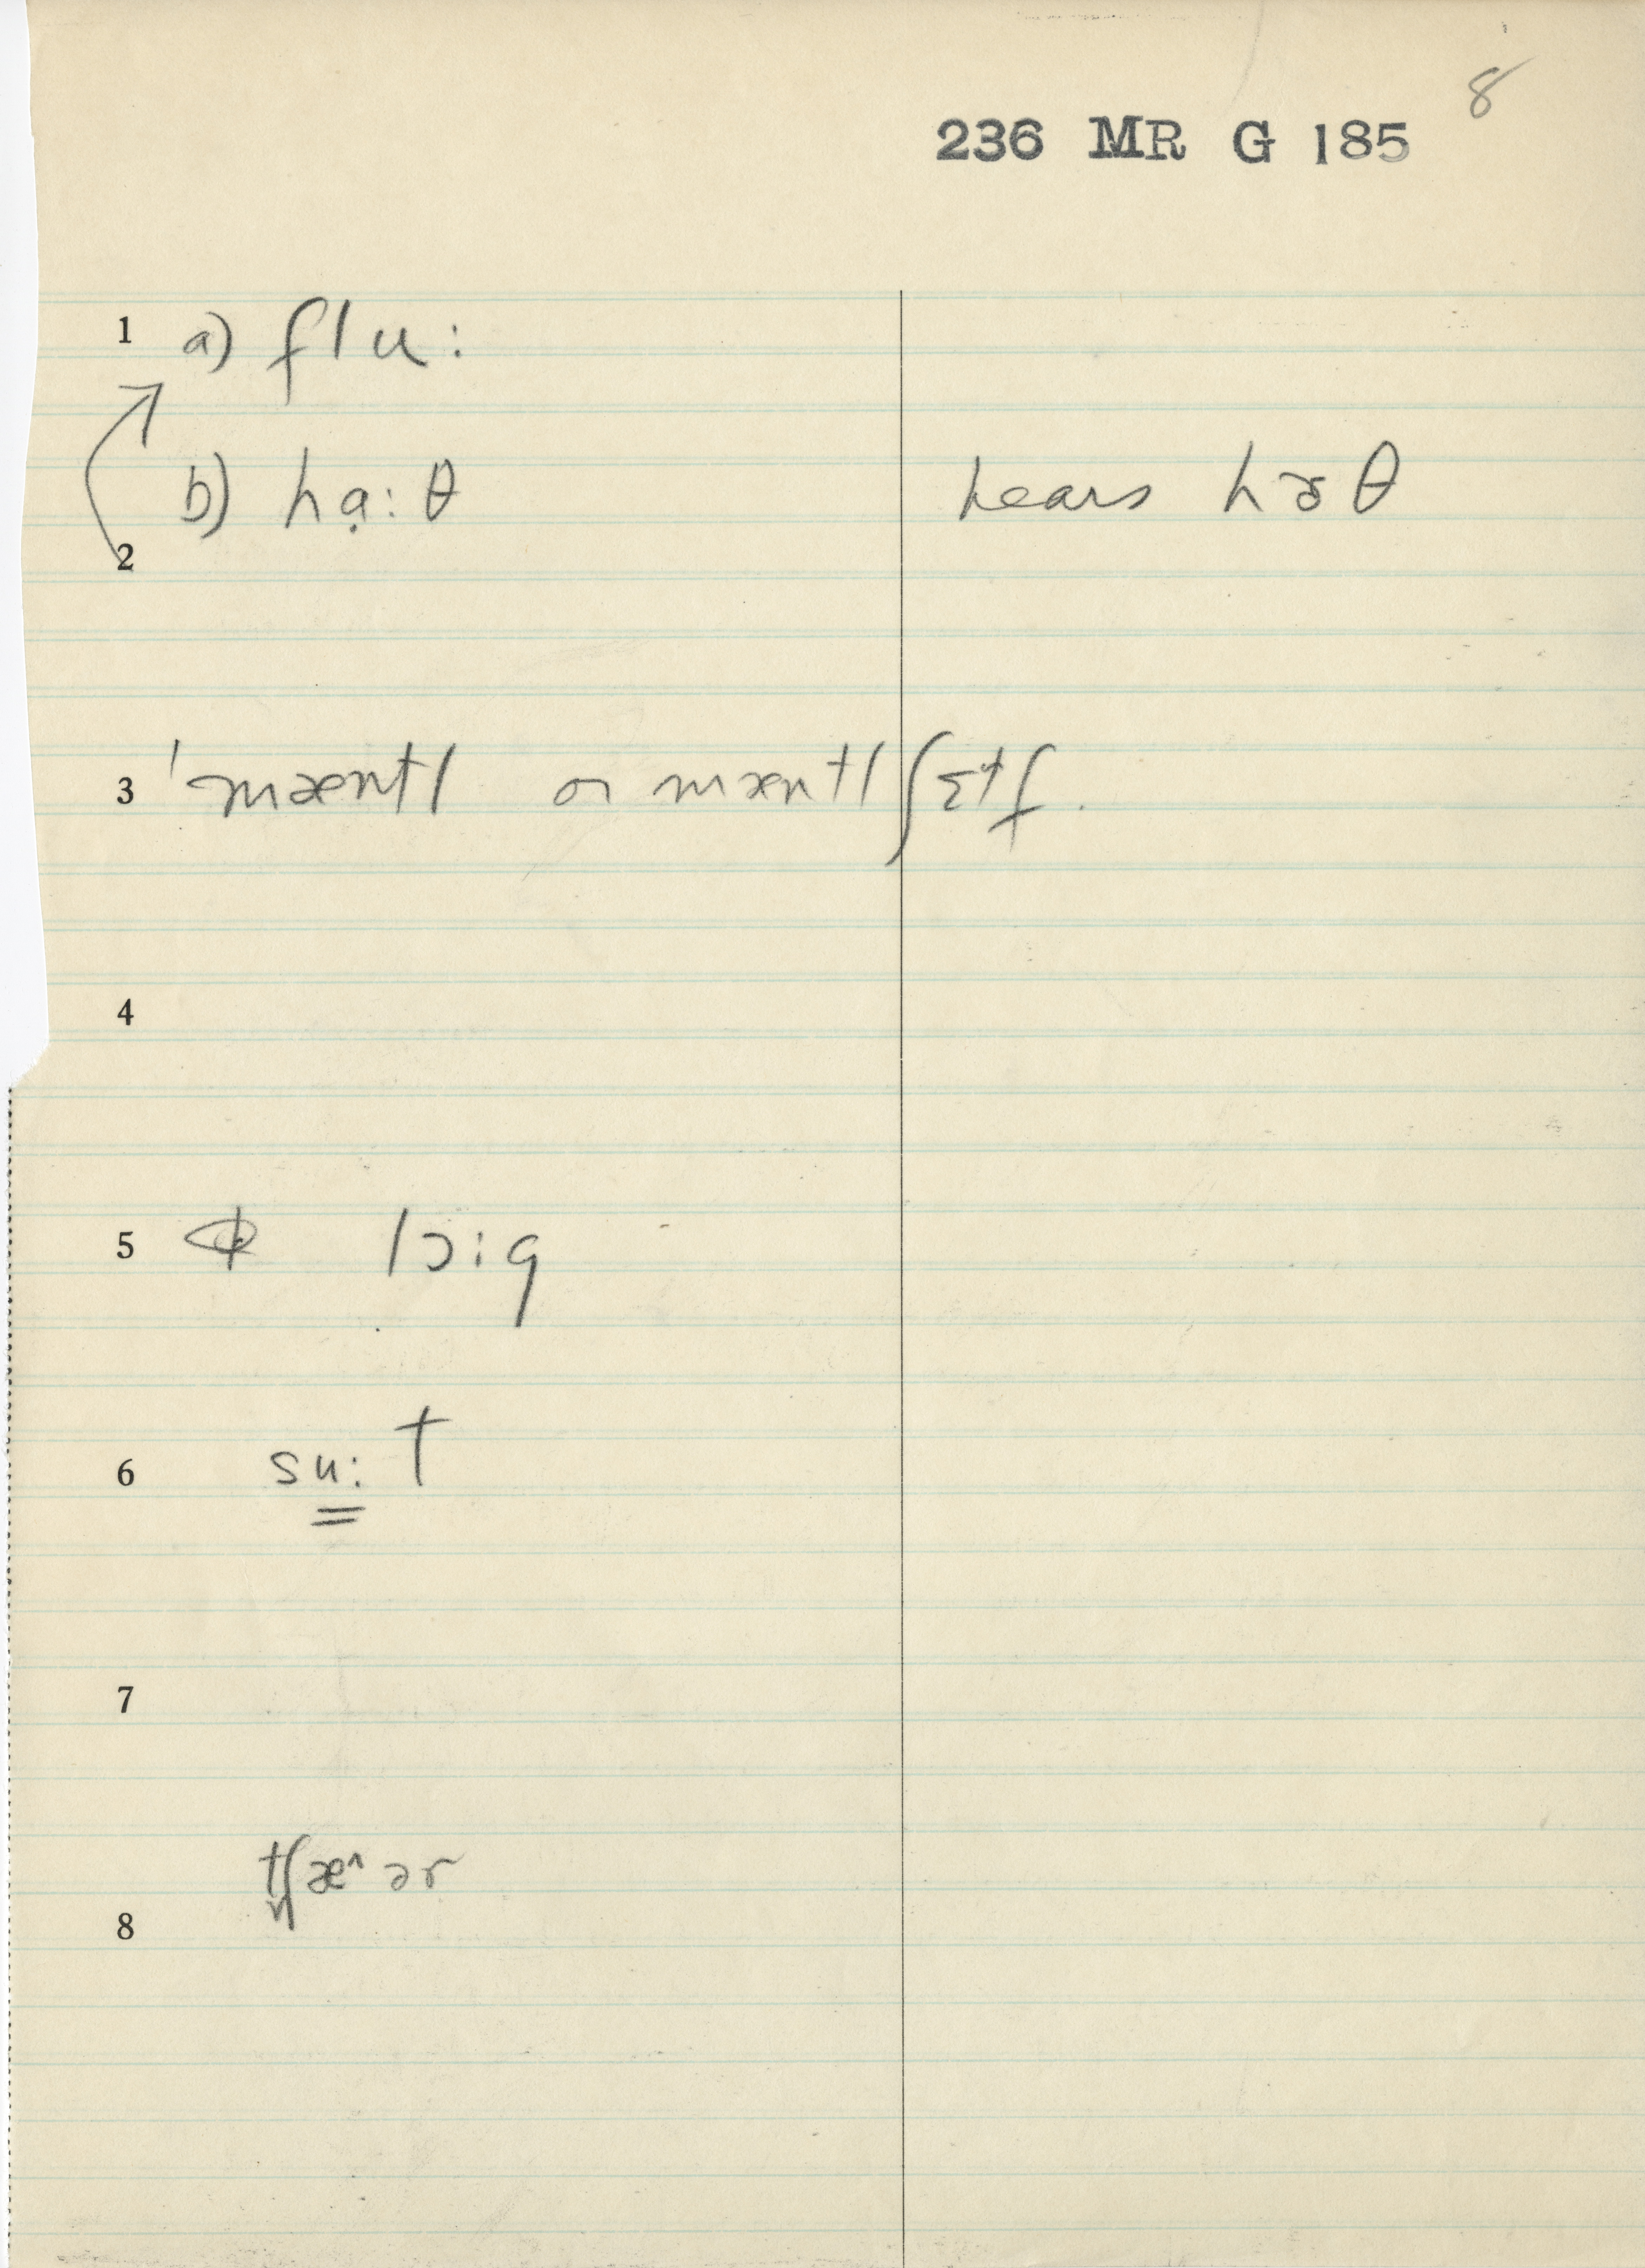 8
236 MR G 185
1 a) flu:
b) hạ:θ hears hɤθ
2
3 ˈmæntl or mæntl ʃɛtf.
4
5 lɔ:g
6 su:t
7
tʃæ^ər
8